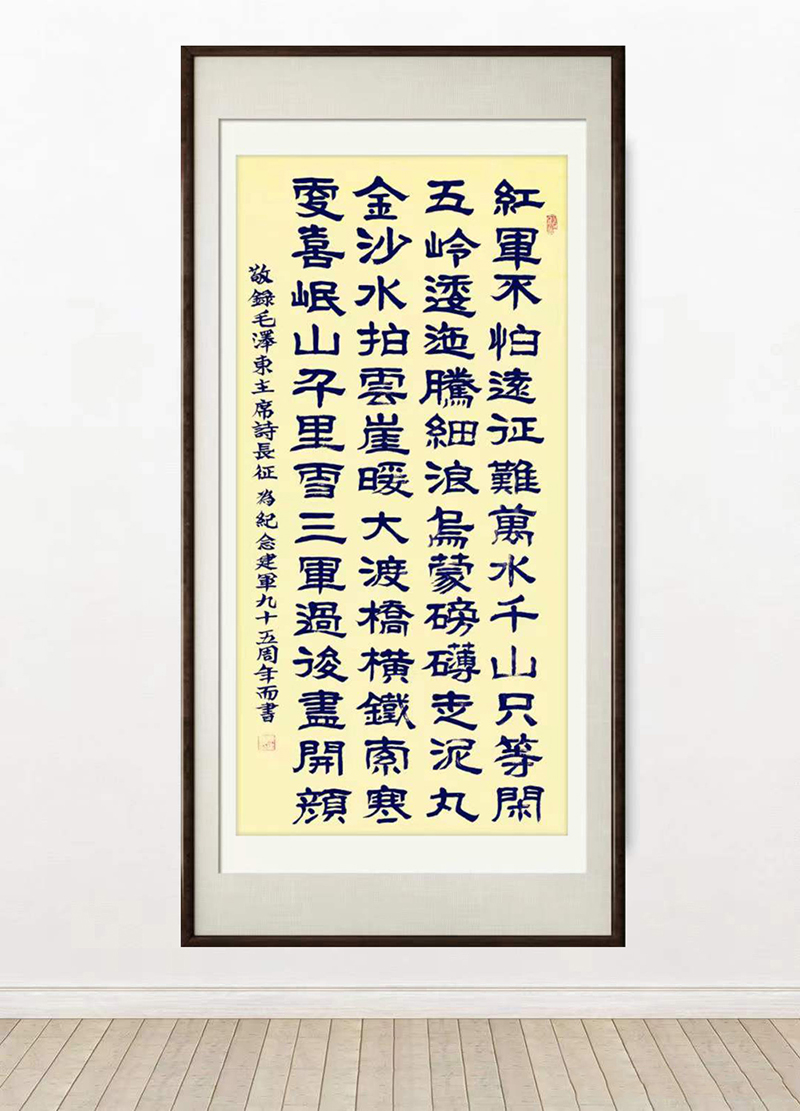 紅軍不怕遠征難萬水千山只等閑
五岭逶迤騰細浪烏蒙磅礴走泥丸
金沙水拍雲崖暖大渡橋橫鐵索寒
更喜岷山千里雪三軍過後盡開顔
敬錄毛澤東主席詩長征 為紀念建軍九十五周年而書